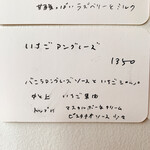 甘酸っぱい ラズベリーとミルク
いちごアングレーズ
1350
バニラアングレーズソースといちごシャーベット
いちご果肉
マスカルポーネクリーム
ピスタチオソース